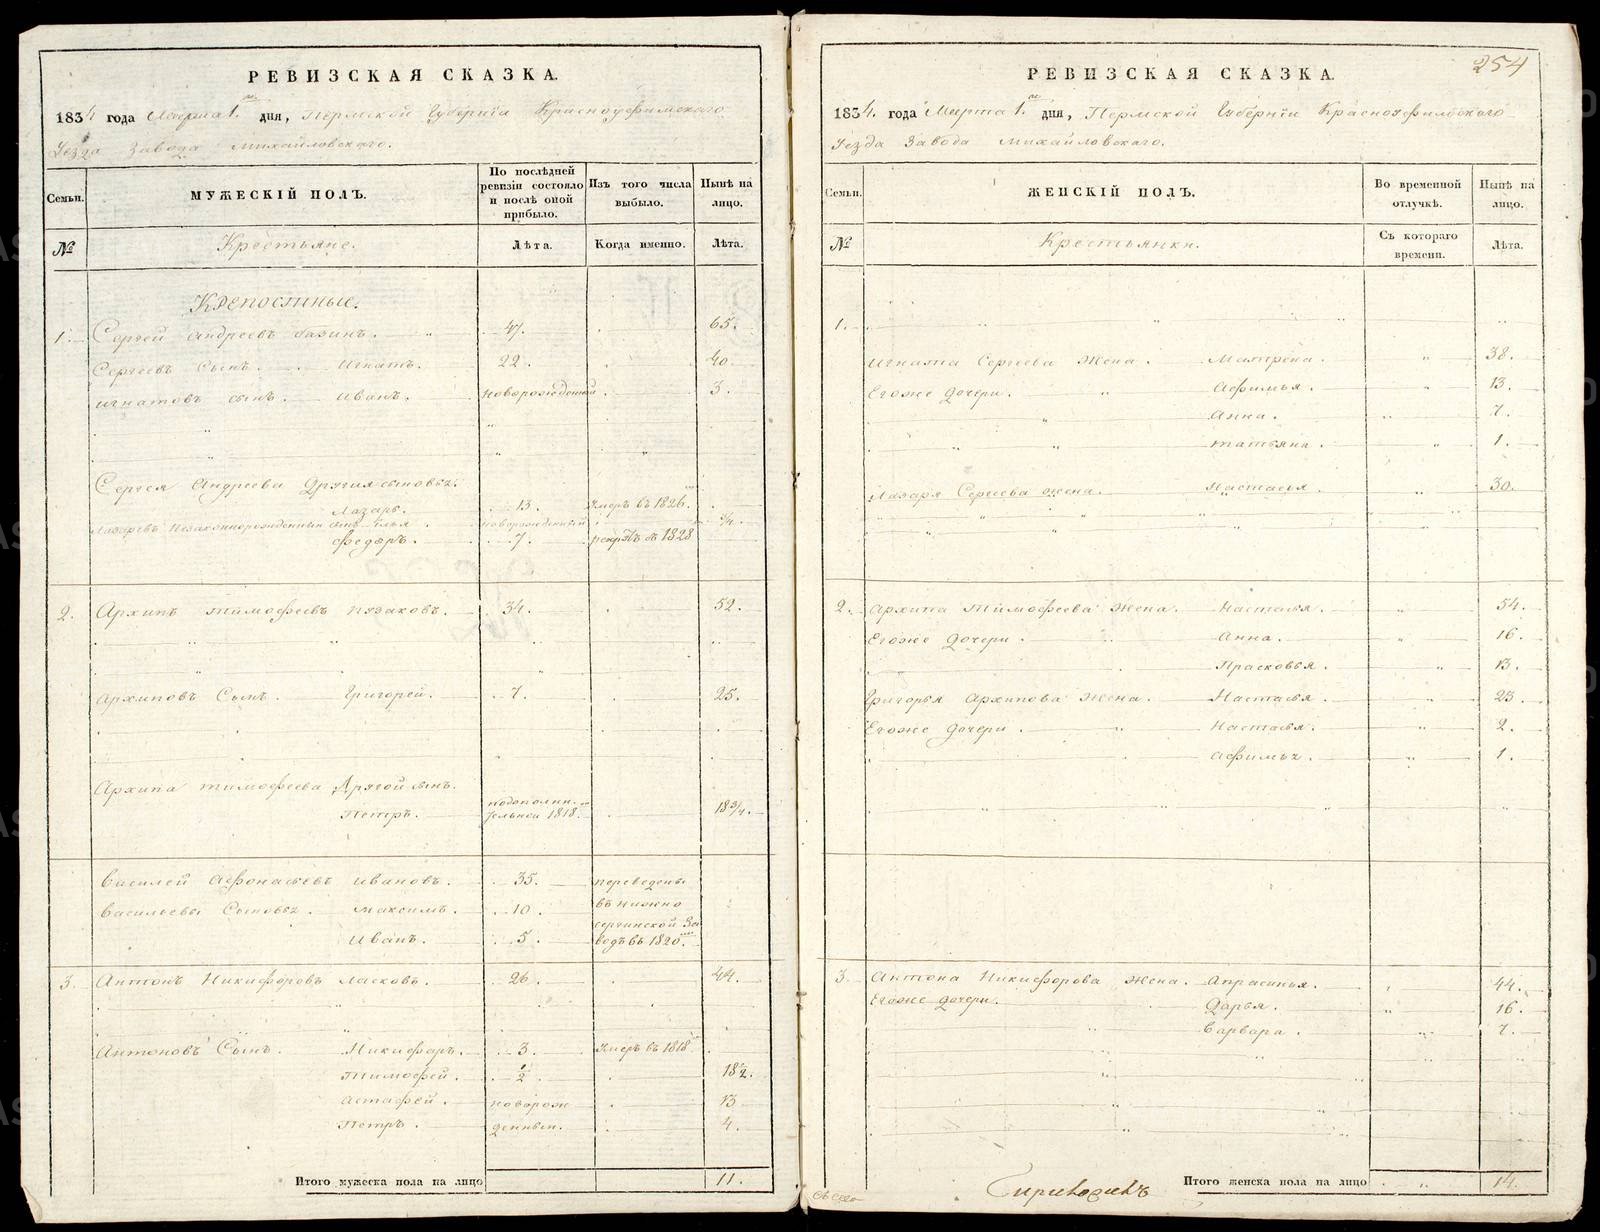 РЕВИЗСКАЯ СКАЗКА.
1834 года Марта 1. дня, Пермской Губернiи Красноуфимского
Уезда Завода Михайловскаго.
Семьи.
МУЖЕСКIЙ ПОЛЪ.
По последней ревизiи состояло и послѣ оной прибыло.
Изъ того числа выбыло.
Нынѣ на лицо.
№
Крестьяне.
Лѣта.
Когда именно.
Лѣта.
Крепостные.
1. Сергей Андреевъ 47. 65.
Сергеевъ Сынъ. Игнатъ. 22. 40
Игнатовъ сынъ. Иванъ. новорожденной 3.
Сергея Андреева Другия сыновья.
Лазарь. 13. Умеръ въ 1826.
Лазаревъ незаконнорожденный сынъ Илья. новорожденный
Федоръ. 7. рекрутъ въ 1828
2. Архипъ Тимофеевъ Пузаковъ. 34. 52.
Архиповъ Сынъ. Григорей. 7. 25.
Архипа Тимофеева Другой сынъ.
Петръ. подополни-тельной 1818. 18¾.
Василей Афонасьевъ Ивановъ. 35. переведены
Васильевы Сыновья. Максимъ. 10. въ Нижно
сергинской За
Иванъ. 5. водъ въ 1820.
3. Антонъ Никифоровъ Ласковъ. 26. 44.
Антоновъ Сынъ. Никифоръ. 3. Умеръ въ 1818
Тимофей. ½. 18½.
Астафей. новорож 13
Петръ. денныи. 4.
Итого мужеска пола на лицо 11.
254
РЕВИЗСКАЯ СКАЗКА.
1834. года Марта 1. дня, Пермской Губернiи Красноуфимского
Уезда Завода Михайловскаго.
Семьи.
ЖЕНСКIЙ ПОЛЪ.
Во временной отлучкѣ.
Нынѣ на лицо.
№
Крестьянки.
Съ котораго времени.
Лѣта.
1.
Игната Сергеева Жена. Матрена. 38.
Егоже дочери. Афимья. 13.
Анна. 7.
Татьяна. 1.
Лазаря Сергеева жена. Настасья. 30.
2. Архипа Тимофеева Жена. Настасья. 54.
Егоже дочери. Анна. 16.
Прасковья. 13.
Григорья Архипова Жена. Настасья. 23.
Егоже дочери. Настасья. 2.
Афимья. 1.
3. Антона Никифорова Жена. Апрасинья. 44.
Егоже дочери. Дарья. 16.
Варвара. 7.
Итого женска пола на лицо 14.